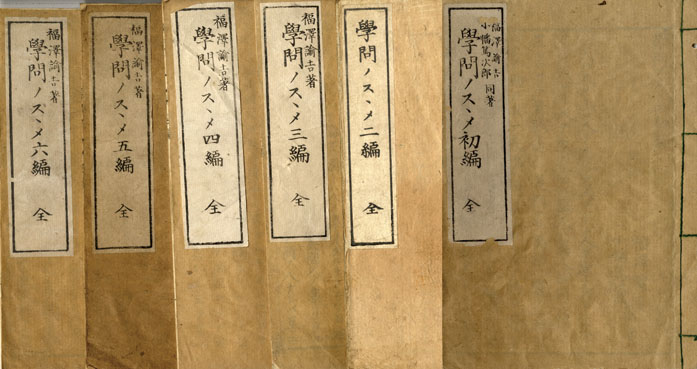 福澤諭吉
小幡篤次郎 同著
學問ノスヽメ初編 全
學問ノスヽメ二編 全
福澤諭吉著
學問ノスヽメ三編 全
福澤諭吉著
學問ノスヽメ四編 全
福澤諭吉著
學問ノスヽメ五編 全
福澤諭吉著
學問ノスヽメ六編 全